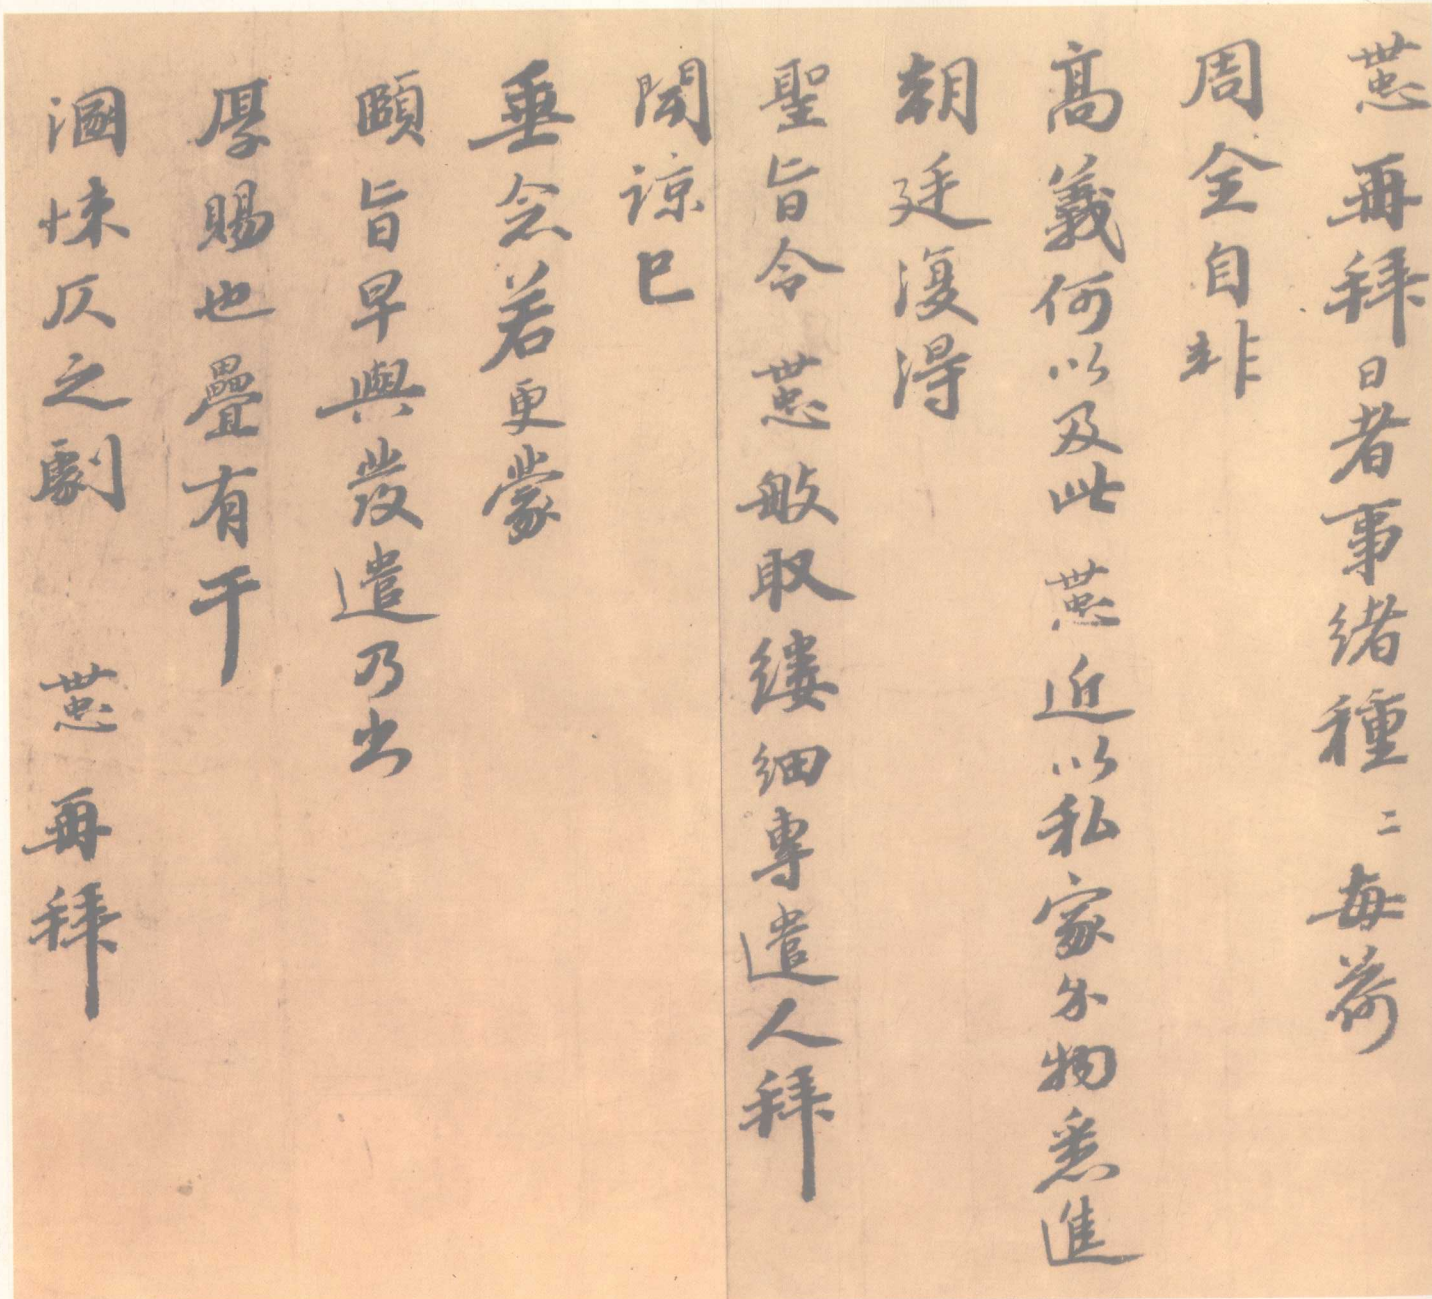 世忠再拜日者事緒種二每荷
周全自非
高義何以及此世忠近以私家物悉進
朝廷復得
聖旨令世忠般取縷細專遣人拜
聞諒已
垂念若更蒙
頤旨早與發遣乃出
厚賜也疊有干
溷悚仄之劇 世忠再拜